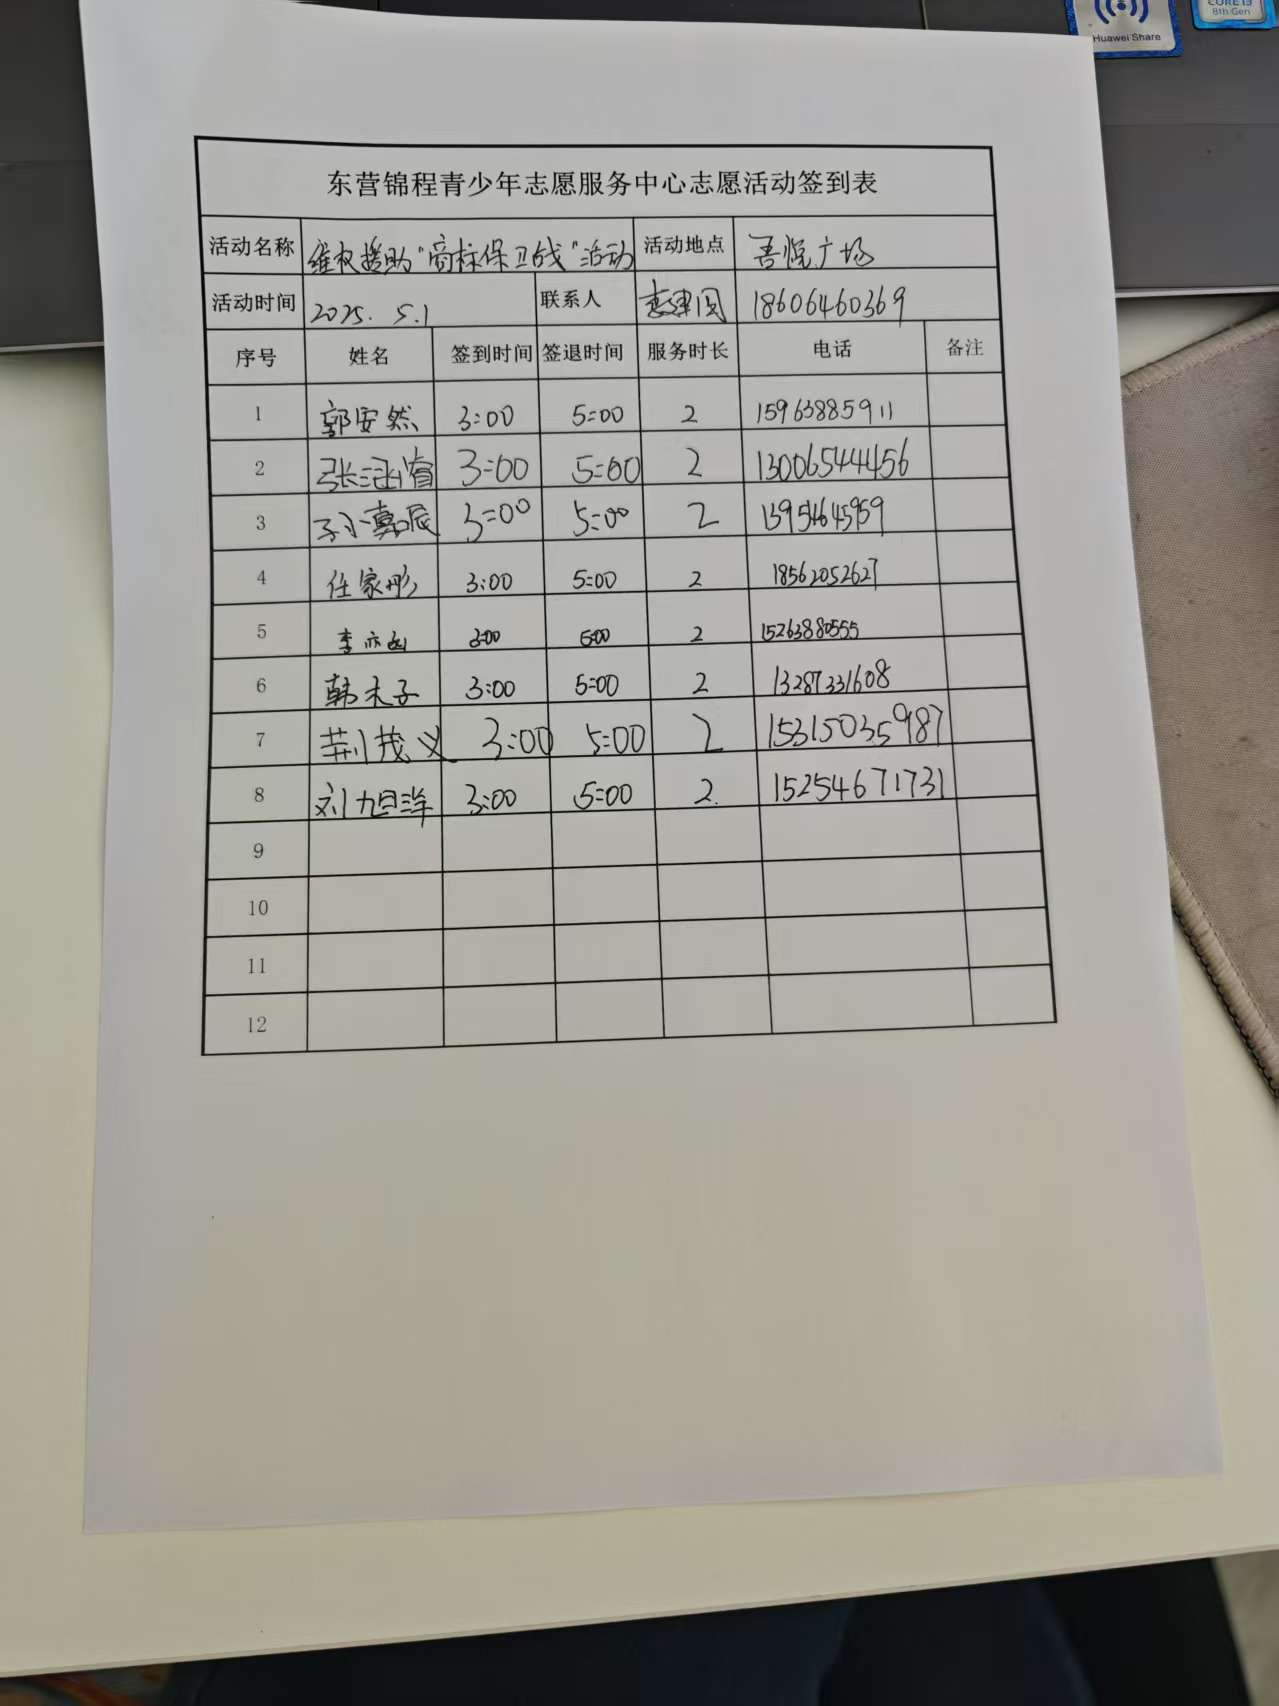 CORE i3
8th Gen
Huawei Share
东营锦程青少年志愿服务中心志愿活动签到表
活动名称 维权援助"商标保卫战"活动 活动地点 吾悦广场
活动时间 2025.5.1 联系人 18606460369
序号 姓名 签到时间 签退时间 服务时长 电话 备注
1 郭安然 3:00 5:00 2 15963885911
2 张涵睿 3:00 5:00 2 13006544456
3 孙嘉辰 3:00 5:00 2 13954645959
4 任家彤 3:00 5:00 2 18562052627
5 李亦 3:00 5:00 2 15263880555
6 韩禾子 3:00 5:00 2 13287331608
7 荆茂义 3:00 5:00 2 15315035987
8 刘旭洋 3:00 5:00 2. 15254671731
9
10
11
12